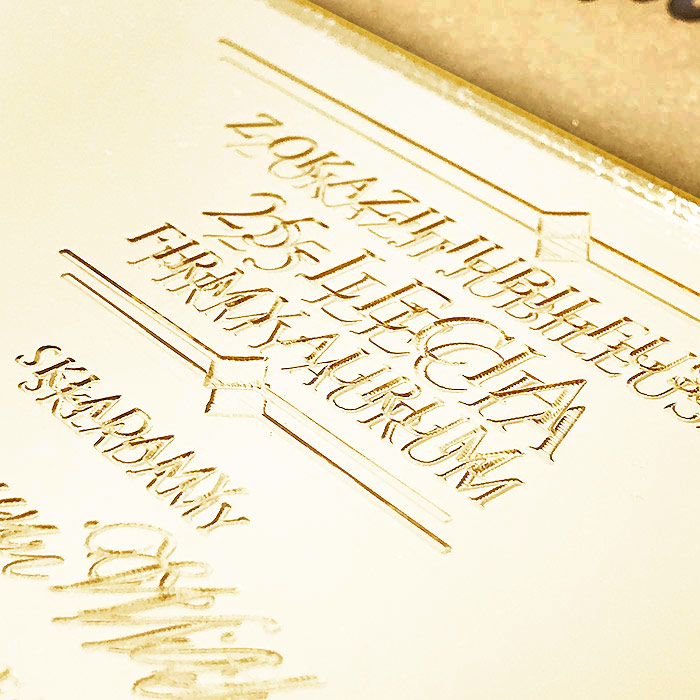 Z OKAZJI JUBILEUSZ
25 LECIA
FIRMY AURUM
SKŁADAMY